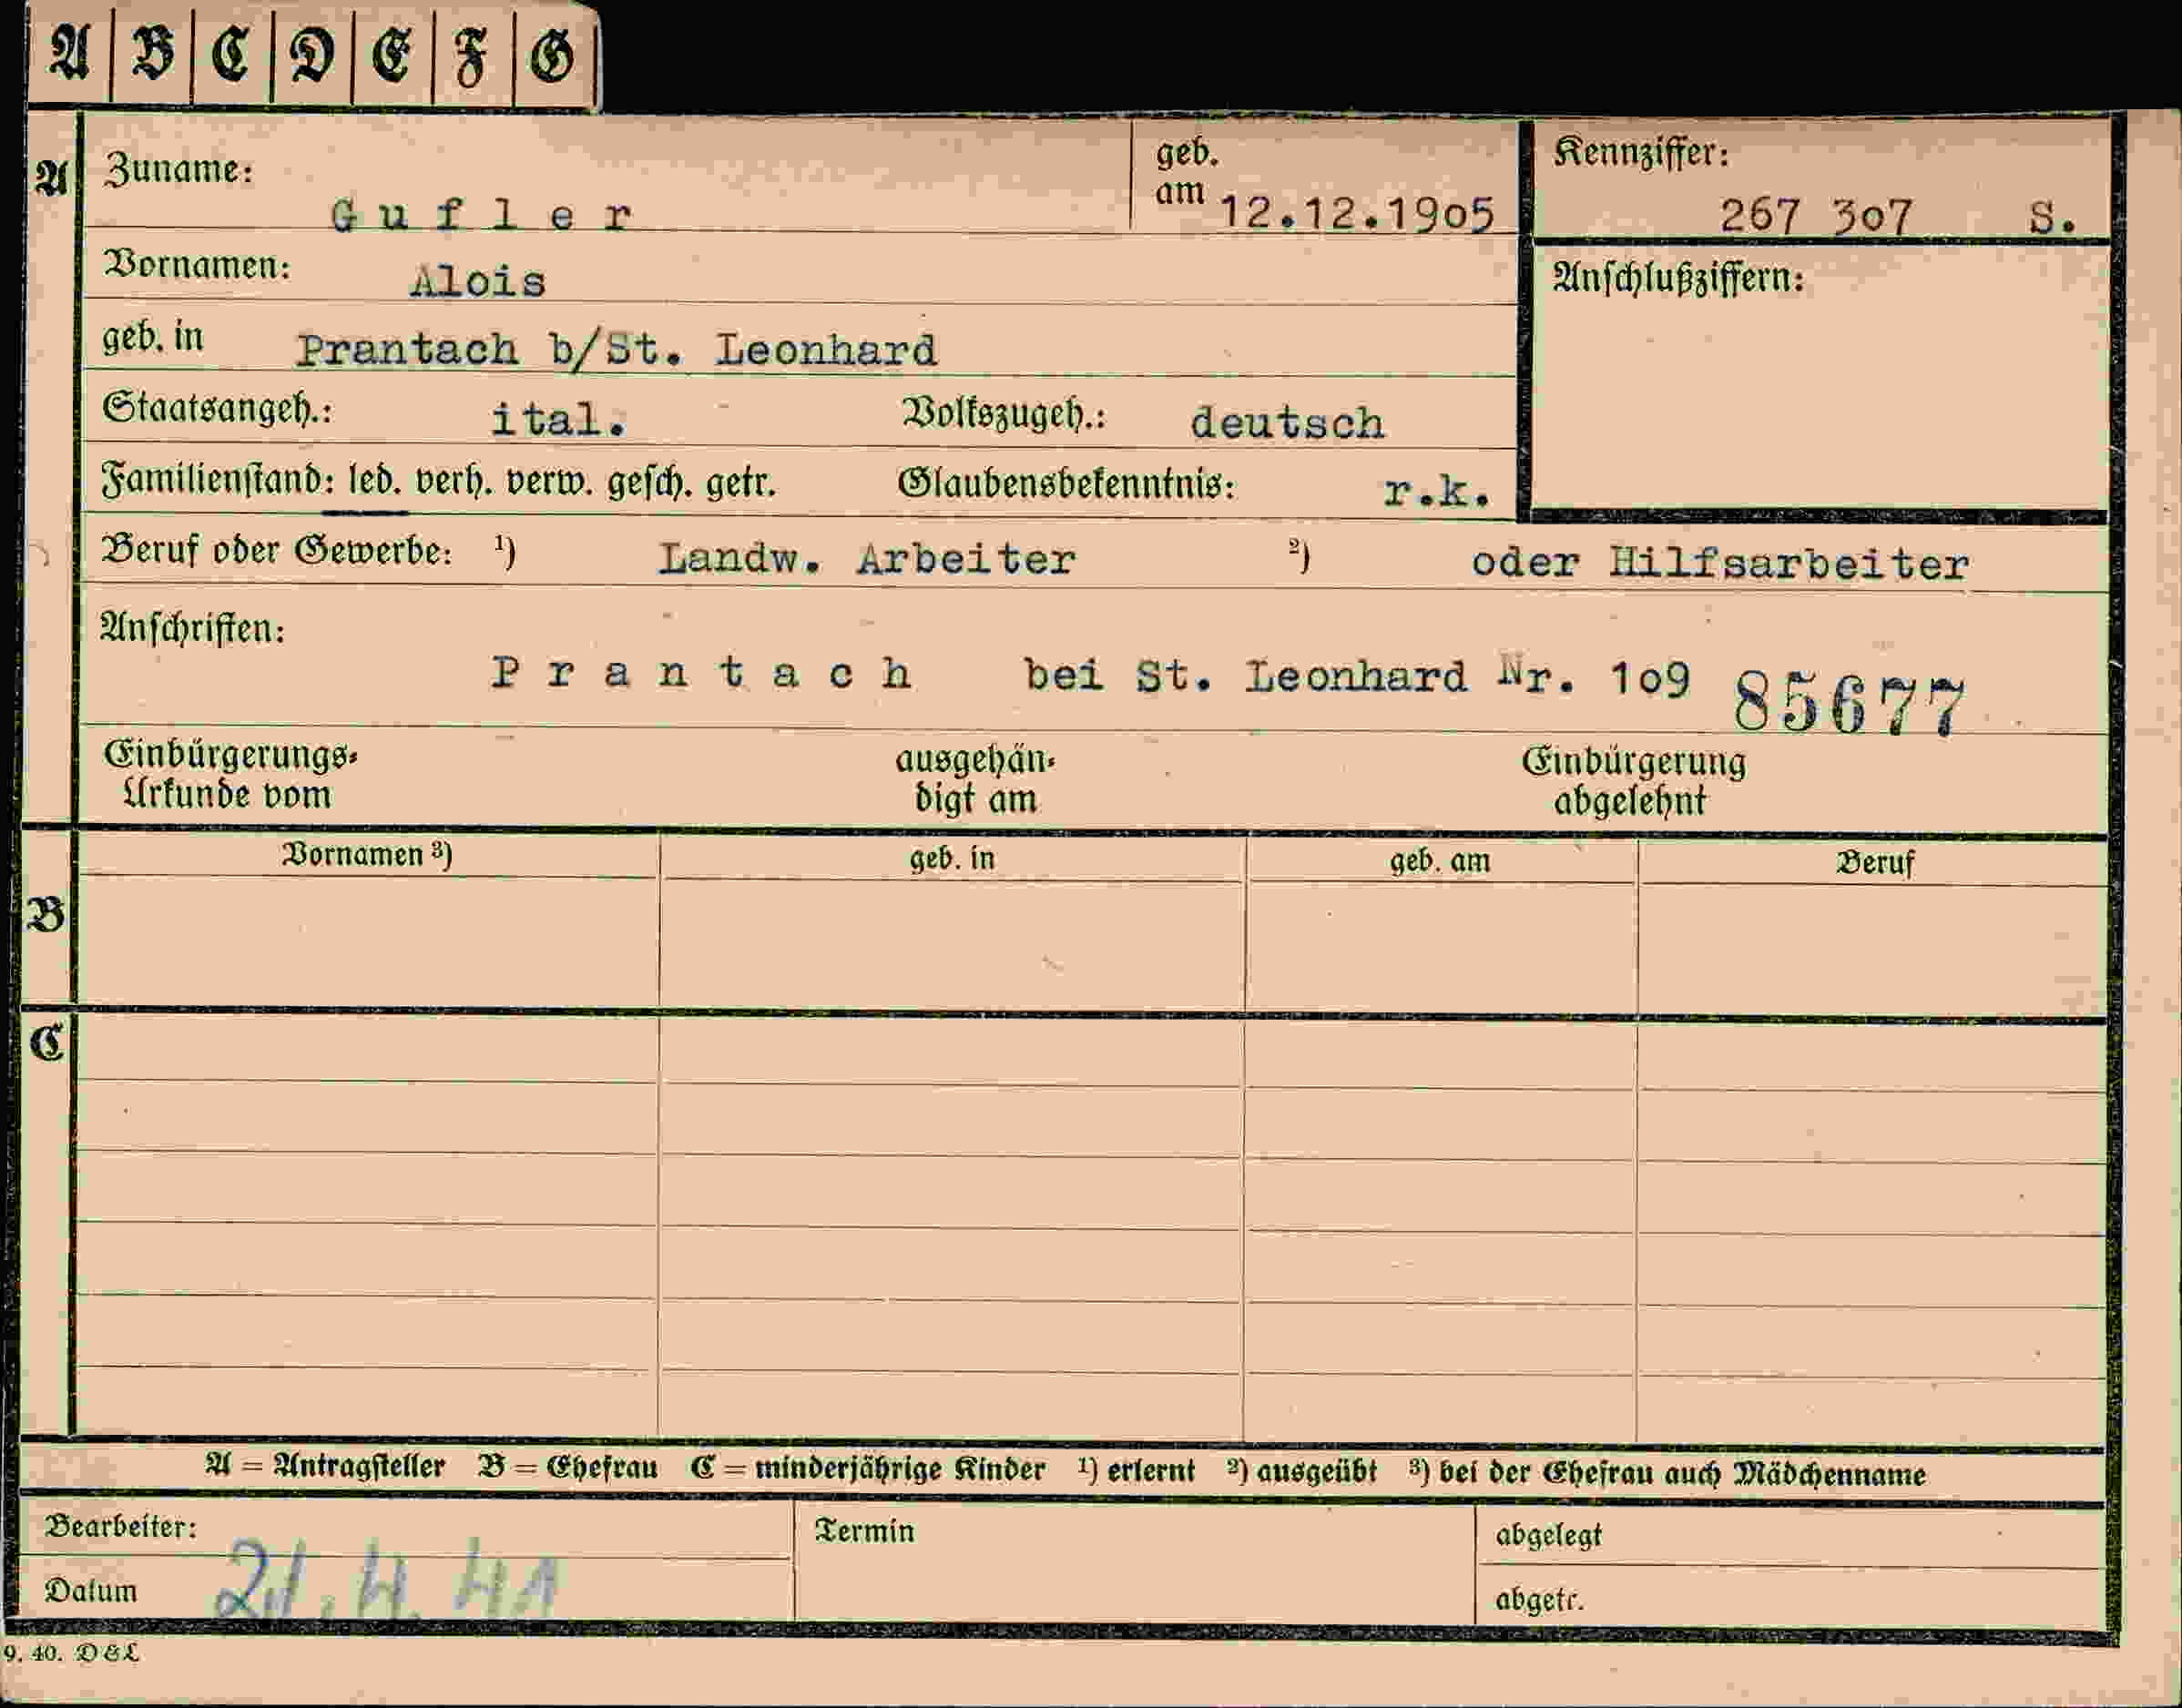 A B C D E F G
A Zuname: Gufler geb. am 12.12.1905 Kennziffer: 267 307 S.
Vornamen: Alois Anschlußziffern:
geb. in Prantach b/St. Leonhard
Staatsangeh.: ital. Volkszugeh.: deutsch
Familienstand: led. verh. verw. gesch. getr. Glaubensbekenntnis: r.k.
Beruf oder Gewerbe: ¹) Landw. Arbeiter ²) oder Hilfsarbeiter
Anschriften:
Prantach bei St. Leonhard Nr. 109 85677
Einbürgerungs- ausgehän- Einbürgerung
Urkunde vom digt am abgelehnt
Vornamen ³) geb. in geb. am Beruf
B
C
A = Antragsteller B = Ehefrau C = minderjährige Kinder ¹) erlernt ²) ausgeübt ³) bei der Ehefrau auch Mädchenname
Bearbeiter: Termin abgelegt
Datum 21.4.41 abgetr.
9. 40. D&L